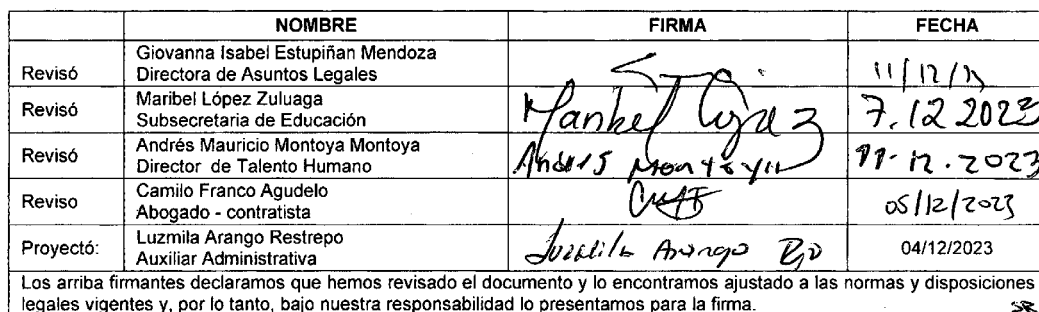 NOMBRE FIRMA FECHA
Revisó Giovanna Isabel Estupiñan Mendoza
Directora de Asuntos Legales 11/12/23
Revisó Maribel López Zuluaga Maribel López Z
Subsecretaria de Educación 7.12 2023
Revisó Andrés Mauricio Montoya Montoya Andrés Montoya
Director de Talento Humano 11.12.2023
Reviso Camilo Franco Agudelo
Abogado - contratista 05/12/2023
Proyectó: Luzmila Arango Restrepo Luzmila Arango
Auxiliar Administrativa 04/12/2023
Los arriba firmantes declaramos que hemos revisado el documento y lo encontramos ajustado a las normas y disposiciones
legales vigentes y, por lo tanto, bajo nuestra responsabilidad lo presentamos para la firma.